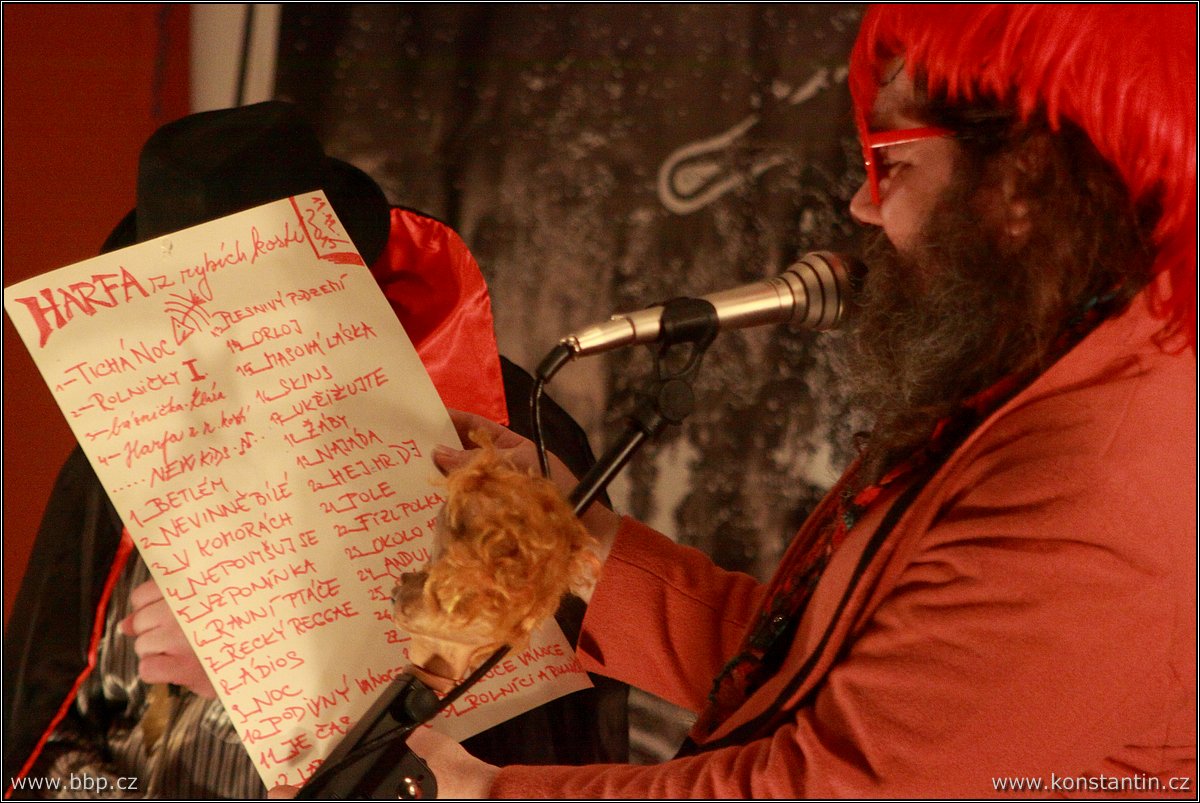 HARFA z rybích kostí
1 – TICHÁ NOC
2 – ROLNIČKY I.
3 – básnička:
4 – Harfa z r. kostí
..... NEW KIDS. N...
1_ BETLÉM
2_ NEVINNĚ BÍLÉ
3_ V KOMORÁCH
4_ NEPOVYŠUJ SE
5_ VZPOMÍNKA
6_ RANNÍ PTÁČE
7_ ŘECKÝ REGGAE
8_ ÁDIOS
9_ NOC
10_ PODIVNÝ VÁNOCE
11_ JE ČAS
12_
PLESNIVÝ PODZEMÍ
14_ ORLOJ
15_ MASOVÁ LÁSKA
16_ SKINS
17_ UKŘIŽUJTE
18_ ŽÁBY
19_ NAJÁDA
20_ HEJ MR. DJ
21_ POLE
22_ FÍZL POLKA
23_ OKOLO
24_ ANDUL
25_
26_
VÁNOCE
ROLNÍCI A
www.bbp.cz
www.konstantin.cz